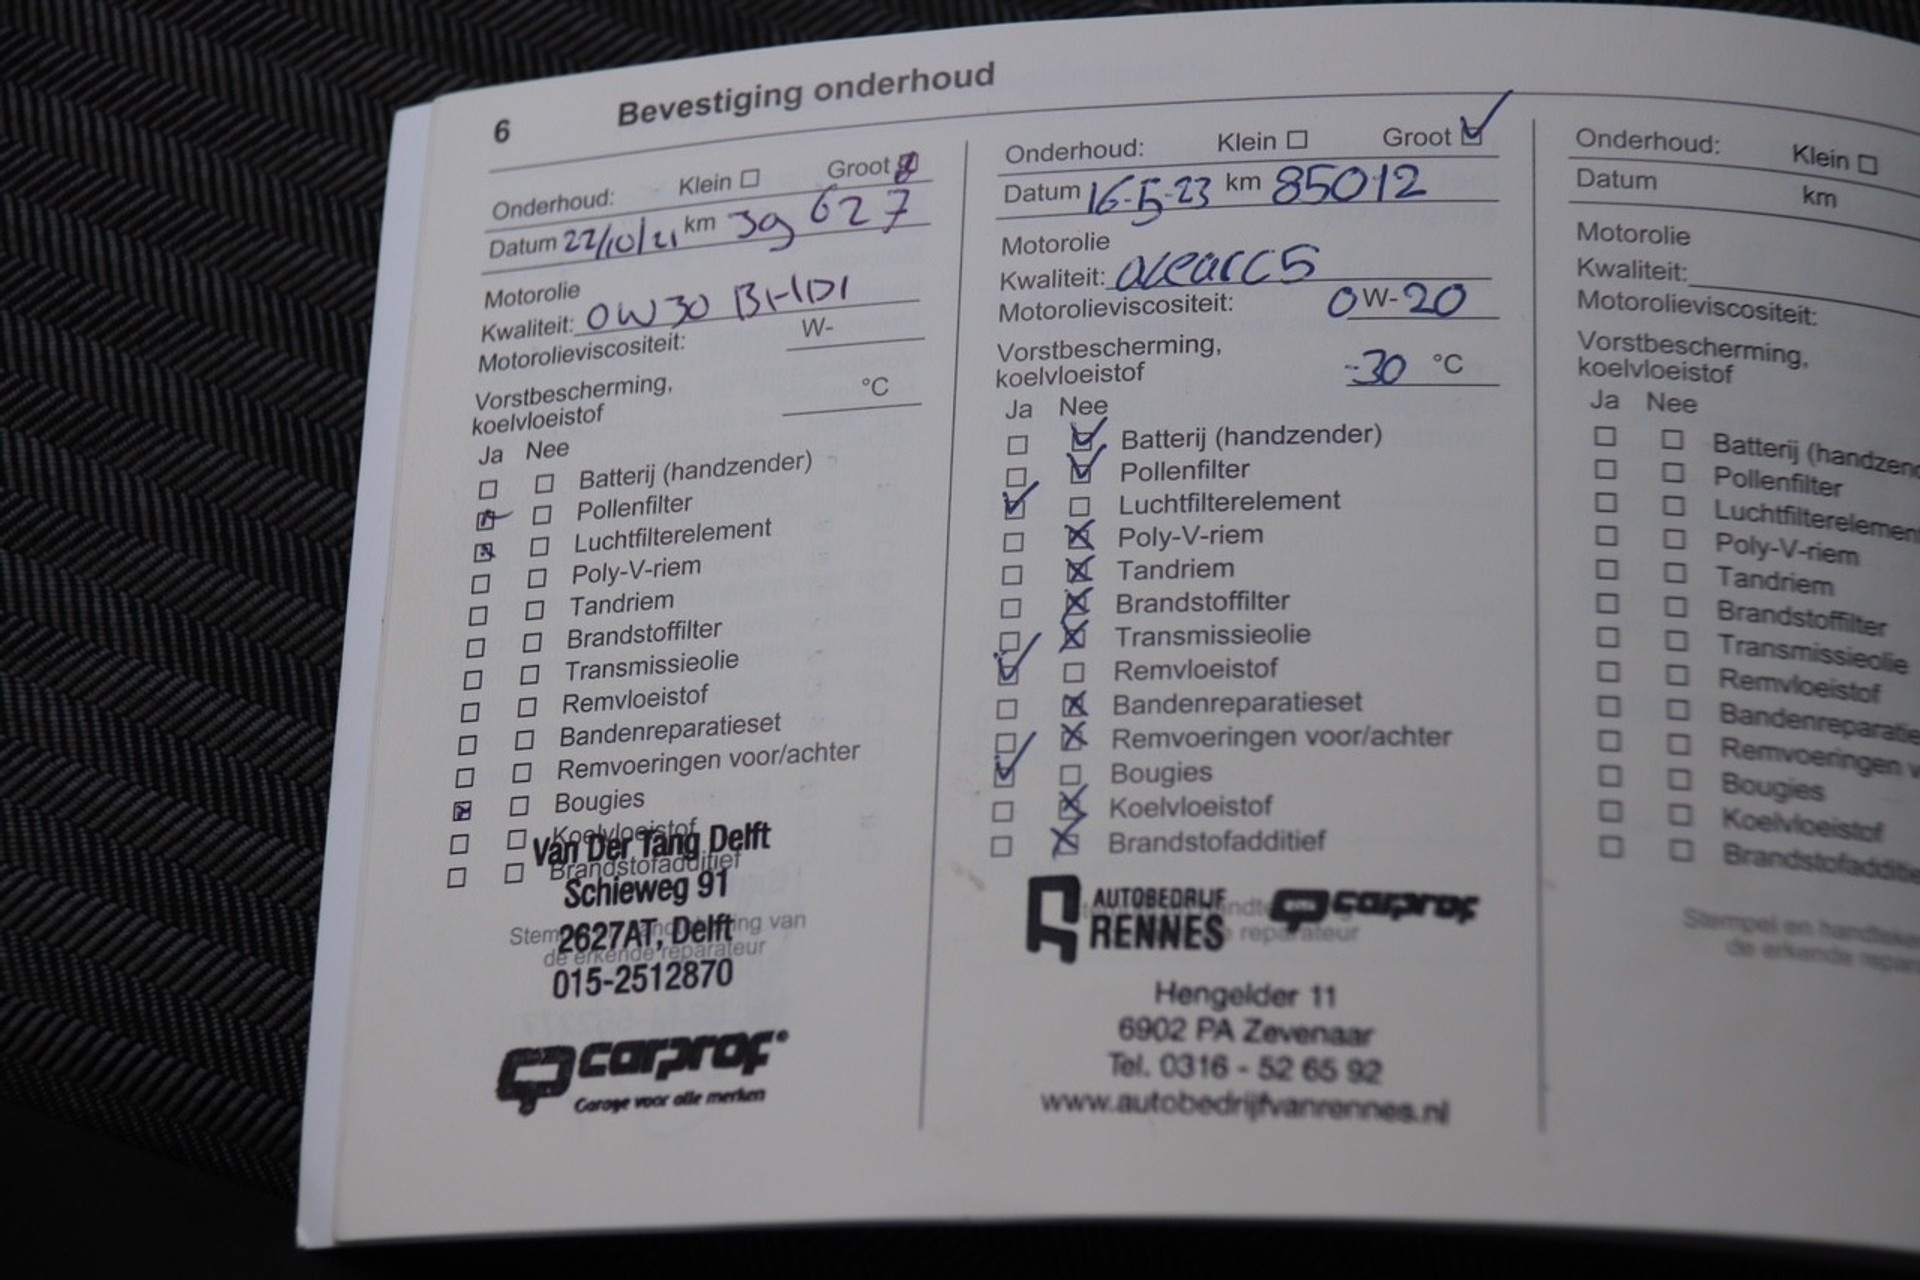 6 Bevestiging onderhoud
Onderhoud: Klein Groot
Datum 22/10/21 km 39 627
Motorolie
Kwaliteit: 0W30 BHDI
Motorolieviscositeit: W-
Vorstbescherming,
koelvloeistof °C
Ja Nee
Batterij (handzender)
Pollenfilter
Luchtfilterelement
Poly-V-riem
Tandriem
Brandstoffilter
Transmissieolie
Remvloeistof
Bandenreparatieset
Remvoeringen voor/achter
Bougies
Koelvloeistof
Brandstofadditief
Van Der Tang Delft
Schieweg 91
2627AT, Delft
015-2512870
de erkende reparateur
carprof
Garage voor alle merken
Onderhoud: Klein Groot
Datum 16-5-23 km 85012
Motorolie
Kwaliteit: acearc5
Motorolieviscositeit: 0W-20
Vorstbescherming,
koelvloeistof -30 °C
Ja Nee
Batterij (handzender)
Pollenfilter
Luchtfilterelement
Poly-V-riem
Tandriem
Brandstoffilter
Transmissieolie
Remvloeistof
Bandenreparatieset
Remvoeringen voor/achter
Bougies
Koelvloeistof
Brandstofadditief
AUTOBEDRIJF carprof
RENNES reparateur
Hengelder 11
6902 PA Zevenaar
Tel. 0316 - 52 65 92
www.autobedrijfvanrennes.nl
Onderhoud: Klein
Datum km
Motorolie
Kwaliteit:
Motorolieviscositeit:
Vorstbescherming,
koelvloeistof
Ja Nee
Batterij (handzend
Pollenfilter
Luchtfilterelemen
Poly-V-riem
Tandriem
Brandstoffilter
Transmissieolie
Remvloeistof
Bandenreparatie
Remvoeringen v
Bougies
Koelvloeistof
Brandstofadditie
Stempel en handteke
de erkende repara